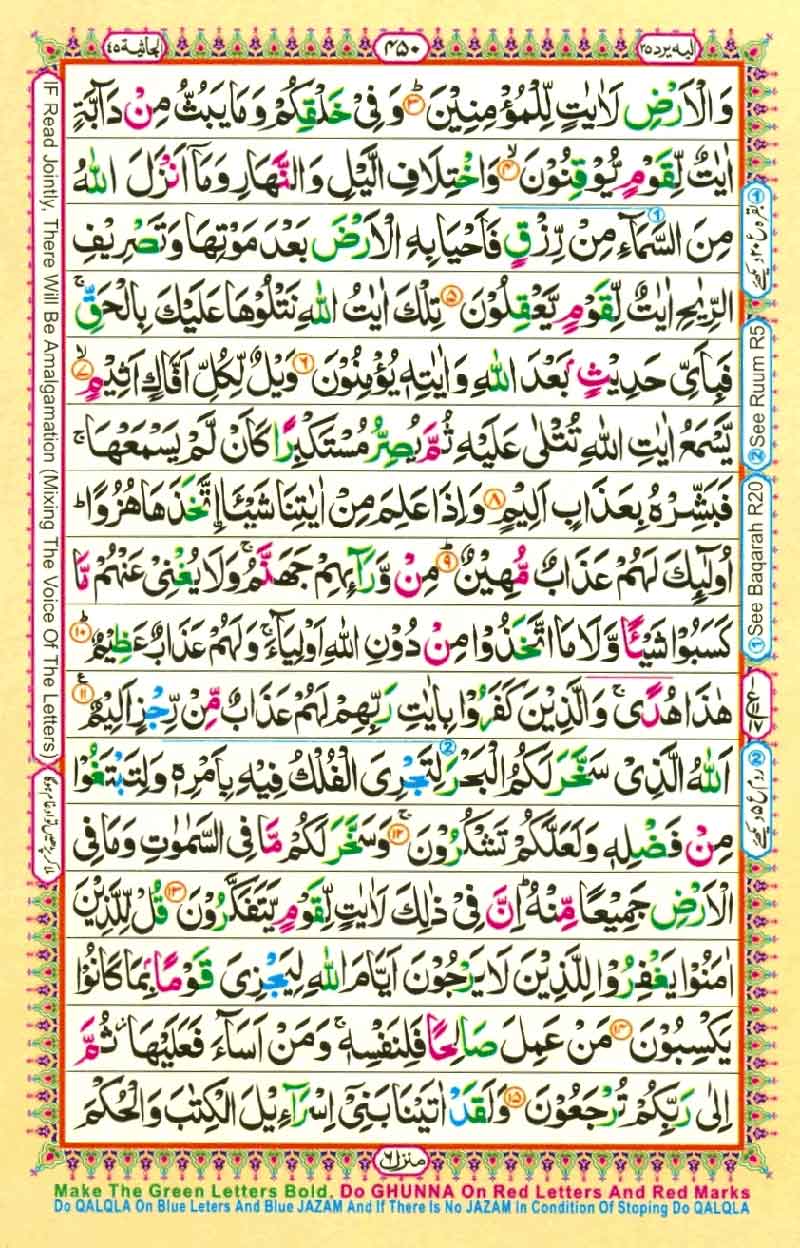 الجاثية ٤٥
٤٥٠
اليه يرد ٢٥
وَالْاَرْضِ لَاٰيٰتٍ لِّلْمُؤْمِنِيْنَ ۳ وَفِىْ خَلْقِكُمْ وَمَا يَبُثُّ مِنْ دَآبَّةٍ
اٰيٰتٌ لِّقَوْمٍ يُّوْقِنُوْنَ ۴ وَاخْتِلَافِ الَّيْلِ وَالنَّهَارِ وَمَآ اَنْزَلَ اللّٰهُ
مِنَ السَّمَآءِ مِنْ رِّزْقٍ فَاَحْيَا بِهِ الْاَرْضَ بَعْدَ مَوْتِهَا وَتَصْرِيْفِ
الرِّيٰحِ اٰيٰتٌ لِّقَوْمٍ يَّعْقِلُوْنَ ۵ تِلْكَ اٰيٰتُ اللّٰهِ نَتْلُوْهَا عَلَيْكَ بِالْحَقِّ ۚ
فَبِاَىِّ حَدِيْثٍۢ بَعْدَ اللّٰهِ وَاٰيٰتِهٖ يُؤْمِنُوْنَ ۶ وَيْلٌ لِّكُلِّ اَفَّاكٍ اَثِيْمٍ ۷
يَّسْمَعُ اٰيٰتِ اللّٰهِ تُتْلٰى عَلَيْهِ ثُمَّ يُصِرُّ مُسْتَكْبِرًا كَاَنْ لَّمْ يَسْمَعْهَا ۚ
فَبَشِّرْهُ بِعَذَابٍ اَلِيْمٍ ۸ وَاِذَا عَلِمَ مِنْ اٰيٰتِنَا شَيْـًٔا اتَّخَذَهَا هُزُوًا ؕ
اُولٰٓئِكَ لَهُمْ عَذَابٌ مُّهِيْنٌ ۹ مِنْ وَّرَآئِهِمْ جَهَنَّمُ ۚ وَلَا يُغْنِىْ عَنْهُمْ مَّا
كَسَبُوْا شَيْـًٔا وَّلَا مَا اتَّخَذُوْا مِنْ دُوْنِ اللّٰهِ اَوْلِيَآءَ ۚ وَلَهُمْ عَذَابٌ عَظِيْمٌ ۱۰
هٰذَا هُدًى ۚ وَالَّذِيْنَ كَفَرُوْا بِاٰيٰتِ رَبِّهِمْ لَهُمْ عَذَابٌ مِّنْ رِّجْزٍ اَلِيْمٌ ۱۱
اَللّٰهُ الَّذِىْ سَخَّرَ لَكُمُ الْبَحْرَ لِتَجْرِىَ الْفُلْكُ فِيْهِ بِاَمْرِهٖ وَلِتَبْتَغُوْا
مِنْ فَضْلِهٖ وَلَعَلَّكُمْ تَشْكُرُوْنَ ۱۲ وَسَخَّرَ لَكُمْ مَّا فِى السَّمٰوٰتِ وَمَا فِى
الْاَرْضِ جَمِيْعًا مِّنْهُ ؕ اِنَّ فِىْ ذٰلِكَ لَاٰيٰتٍ لِّقَوْمٍ يَّتَفَكَّرُوْنَ ۱۳ قُلْ لِّلَّذِيْنَ
اٰمَنُوْا يَغْفِرُوْا لِلَّذِيْنَ لَا يَرْجُوْنَ اَيَّامَ اللّٰهِ لِيَجْزِىَ قَوْمًۢا بِمَا كَانُوْا
يَكْسِبُوْنَ ۱۴ مَنْ عَمِلَ صَالِحًا فَلِنَفْسِهٖ ۚ وَمَنْ اَسَآءَ فَعَلَيْهَا ۫ ثُمَّ
اِلٰى رَبِّكُمْ تُرْجَعُوْنَ ۱۵ وَلَقَدْ اٰتَيْنَا بَنِىْٓ اِسْرَآءِيْلَ الْكِتٰبَ وَالْحُكْمَ
① بقرہ ع ۲۰ دیکھئے
② See Ruum R5
① See Baqarah R20
② روم ع ۵ دیکھئے
IF Read Jointly, There Will Be Amalgamation (Mixing The Voice Of The Letters)
ملا کر پڑھیں تو ادغام ہوگا
منزل ٦
Make The Green Letters Bold, Do GHUNNA On Red Letters And Red Marks
Do QALQLA On Blue Leters And Blue JAZAM And If There Is No JAZAM In Condition Of Stoping Do QALQLA